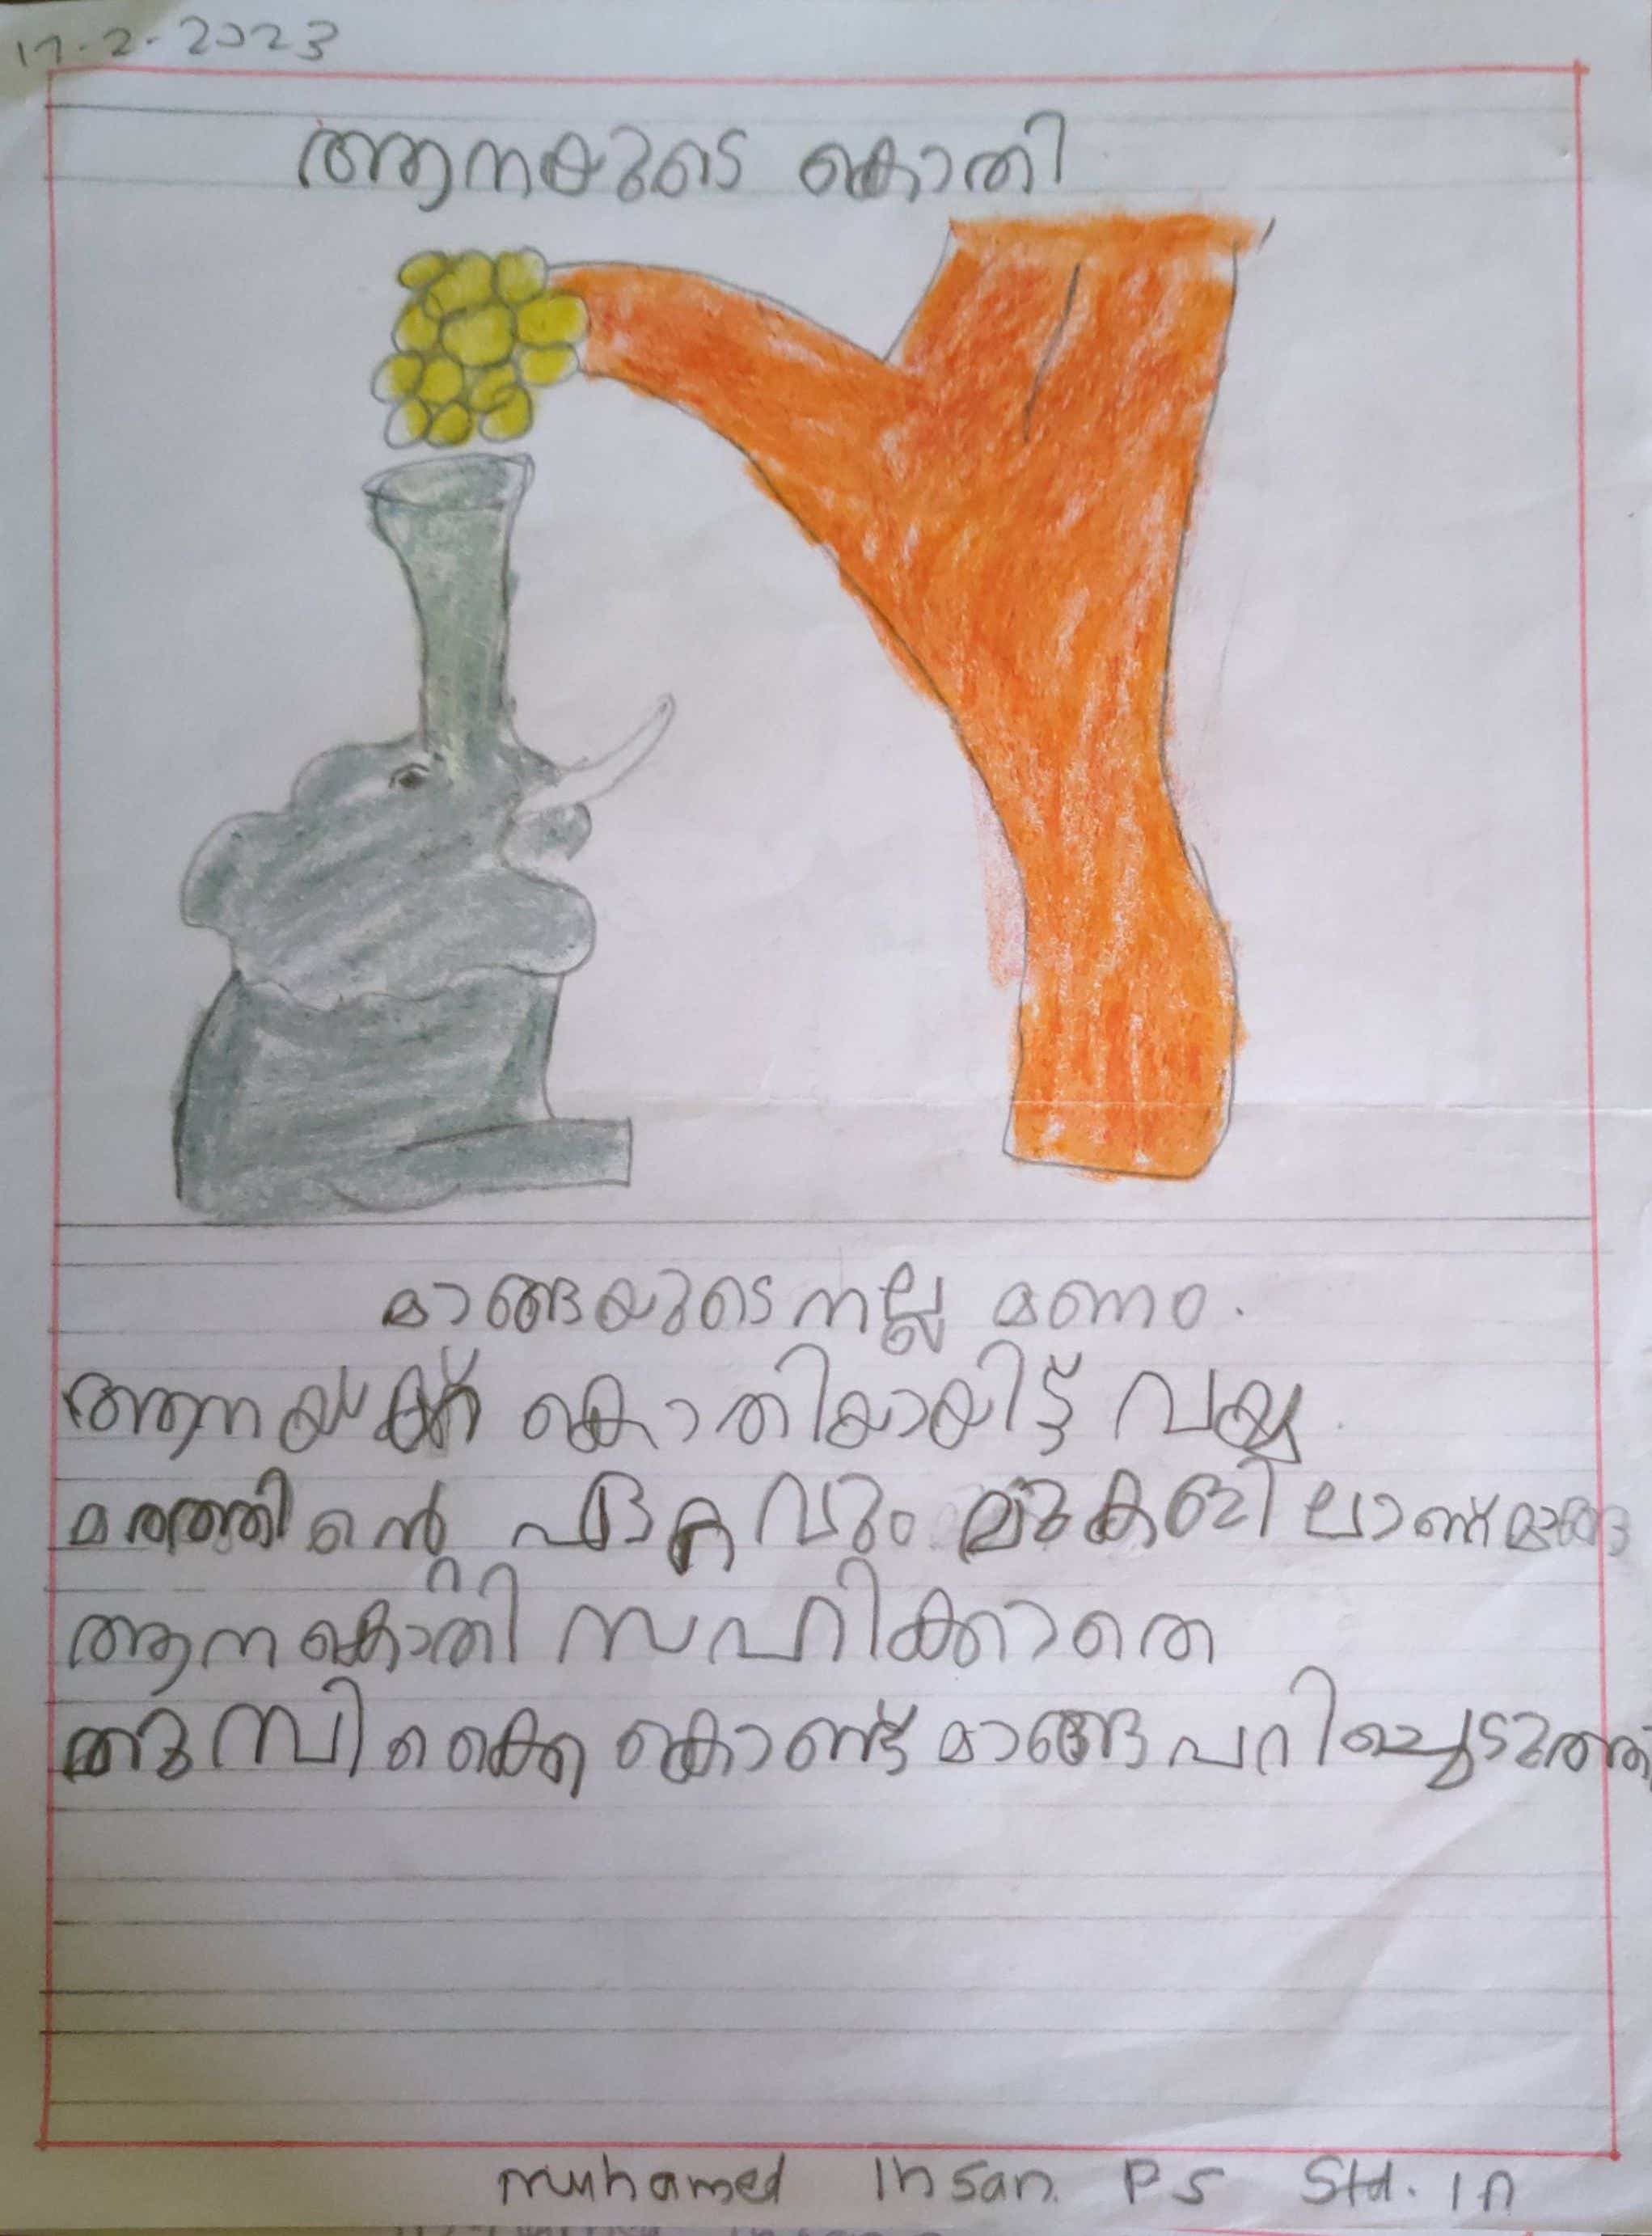 17.2.2023
ആനയുടെ കൊതി
മാങ്ങയുടെ നല്ല മണം.
ആനയ്ക്ക് കൊതിയായിട്ട് വയ്യ
മരത്തിന്റെ ഏറ്റവും മുകളിലാണ് മാങ്ങ
ആന കൊതി സഹിക്കാതെ
തുമ്പി കൈ കൊണ്ട് മാങ്ങ പറിച്ചെടുത്തു
muhamed Ihsan. P S Std. 1A